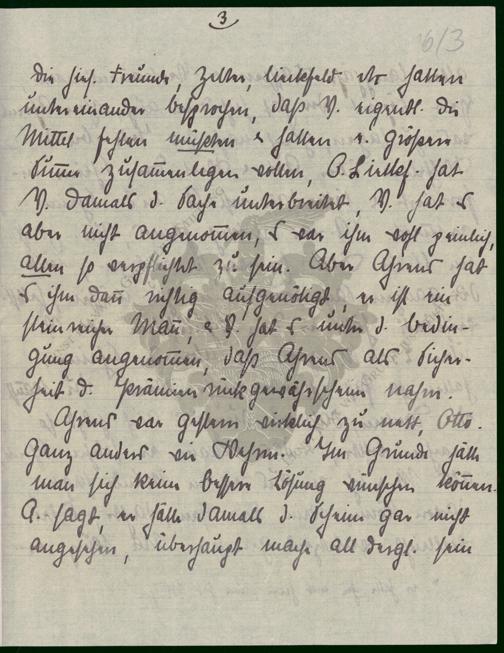 3
6/3
die hies. Freunde, Zelter, Lieckfeld etc hatten
untereinander besprochen, daß V. eigentl. die
Mittel fehlen müßten & hatten e. größere
Summe zusammenlegen wollen, O. hat
V. damals d. Sache unterbreitet, V. hat es
aber nicht angenommen, es war ihm wohl peinlich,
allen so verpflichtet zu sein. Aber Ahrens hat
es ihm dann richtig aufgenötigt, er ist ein
steinreicher Mann, & V. hat es unter d. Bedin-
gung angenommen, daß Ahrens als Sicher-
heit d. Prämienrückgewährschein nahm.
Ahrens war gestern wirklich zu nett, Otto.
Ganz anders wie Im Grunde hätte
man sich keine bessere Lösung wünschen können.
A. sagt, er hätte damals d. Schein gar nicht
angesehen, überhaupt mache all dergl. sein